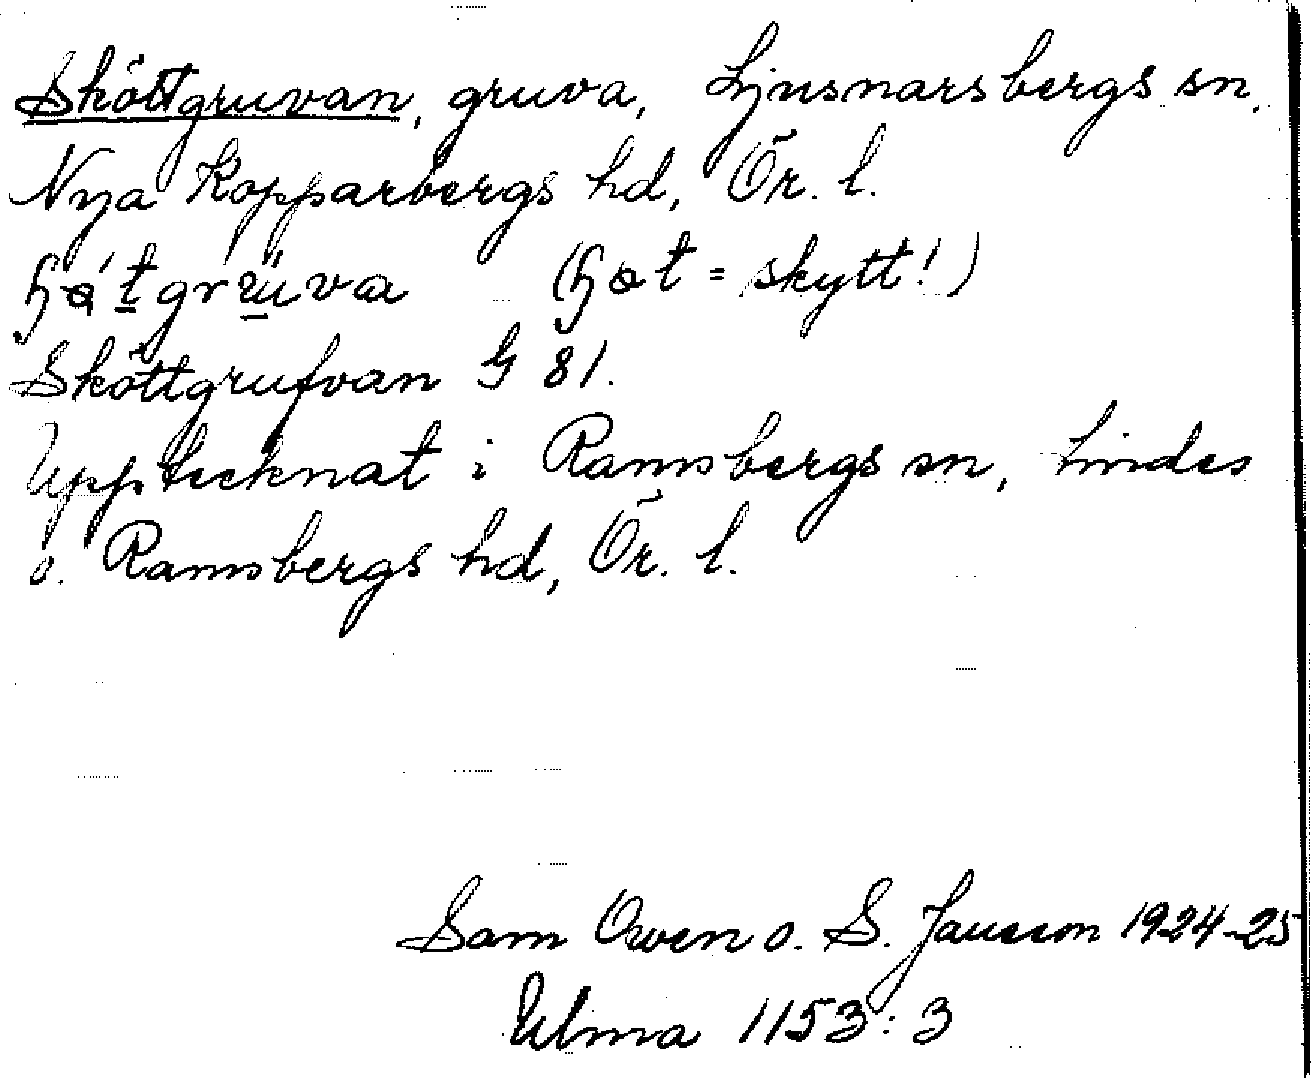 Sköttgruvan, gruva, Ljusnarsbergs sn,
Nya Kopparbergs hd, Ör. l.
(= skytt!)
Sköttgrufvan G 81.
Upptecknat i Ramsbergs sn, Lindes
o. Ramsbergs hd, Ör. l.
Sam Owen o. S. Jansson 1924-25
Ulma 1153:3